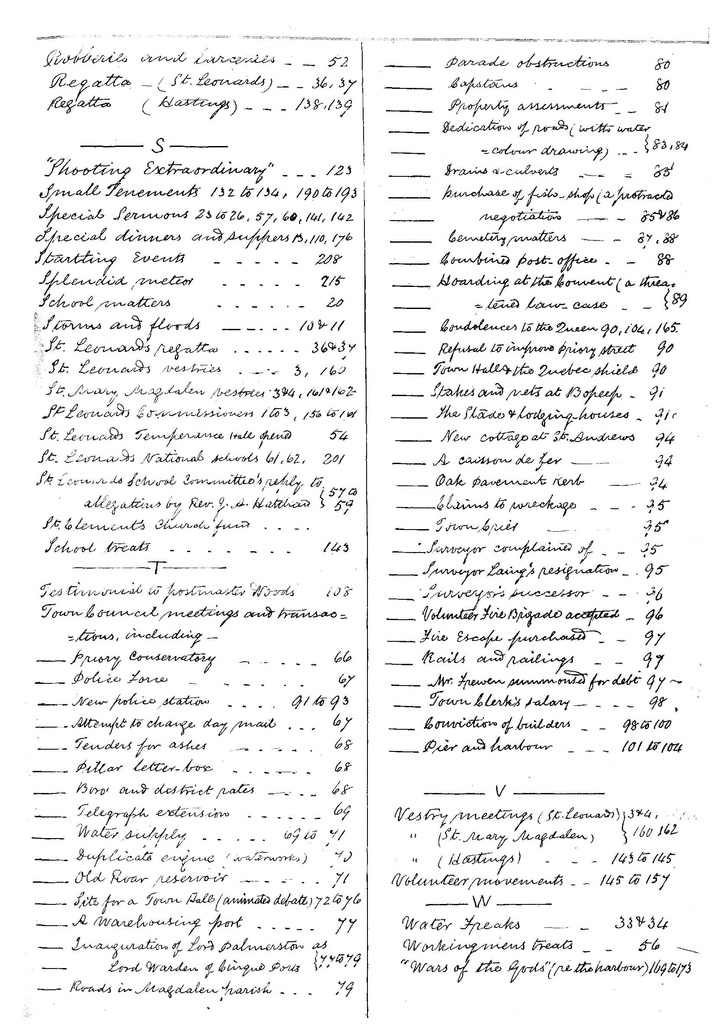 Robberies and Larcenies - - 52
Regatta - (St. Leonards) - - 36, 37
Regatta (Hastings) - - - 138, 139
S
"Shooting Extraordinary" - - - 123
Small Tenements 132 to 134, 190 to 193
Special Sermons 23 to 26, 57, 60, 141, 142
Special dinners and suppers 110, 176
Startling Events - - - - - 208
Splendid meteor - - - - 215
School matters - - - - - 20
Storms and floods - - - - 10 & 11
St. Leonards regatta - - - - - - 36 & 37
St. Leonards vestries - - - 3, 160
St. Mary Magdalen vestries 3 & 4, 161 & 162
St Leonards Commissioners 1 to 3, 156 to
St. Leonards Temperance Hall opend 54
St. Leonards National schools 61, 62, 201
St. Leonards School Committee's reply to
allegations by Rev. J. A. Hatchard } 57 to 59
St. Clement's Church fund - - - -
School treats - - - - - - 143
T
Testimonial to postmaster Woods 108
Town Council meetings and transac=
=tions, including -
Priory Conservatory - - - - 66
Police Force - - - - - 67
New police station - - - - 91 to 93
Attempt to change day mail - - - 67
Tenders for ashes - - - - 68
Pillar letter-box - - - - - 68
Boro' and district rates - - - 68
Telegraph extension - - - - - 69
Water supply - - - - - 69 to 71
Duplicate engine (waterworks) 70
Old Roar reservoir - - - - 71
Site for a Town Hall (animated debate) 72 to 76
A Warehousing port - - - - 77
Inauguration of Lord Palmerston as
Lord Warden of Cinque Ports } 77 to 79
Roads in Magdalen parish - - - 79
Parade obstructions 80
Capstans - - - - 80
Property assessments - - - 81
Dedication of roads (with water
=colour drawing) - - - } 83, 84
Drains & culverts - - = 85
Purchase of fish-shop (a protracted
negotiation - - - 85 & 86
Cemetery matters - - - 87, 88
Combined post-office - - 88
Hoarding at the Convent (a threa=
=tend law-case - - } 89
Condolences to the Queen 90, 104, 165
Refusal to improve Priory street 90
Town Hall & the Quebec shield 90
Stakes and nets at Bopeep - 91
The Stade & lodging-houses - 91
New cottage at St. Andrews 94
A caisson de fer - - - 94
Oak Pavement Kerb - - 94
Claims to wreckage - - 95
Town Crier - - - 95
Surveyor complained of - - 95
Surveyor Laing's resignation - 95
Surveyor's successor - - - 96
Volunteer Fire Brigade accepted - 96
Fire Escape purchased - - 97
Rails and railings - - - 97
Mr. Frewen summoned for debt 97
Town Clerk's salary - - - 98
Conviction of builders - 98 to 100
Pier and harbour - - - 101 to 104
V
Vestry meetings (St. Leonards) } 3 & 4,
" (St. Mary Magdalen) } 160 162
" (Hastings) - - - 143 to 145
Volunteer movements - - 145 to 157
W
Water Freaks - - - 33 & 34
Workingmens treats - - 56
"Wars of the Gods" (re the harbour) 169 to 173